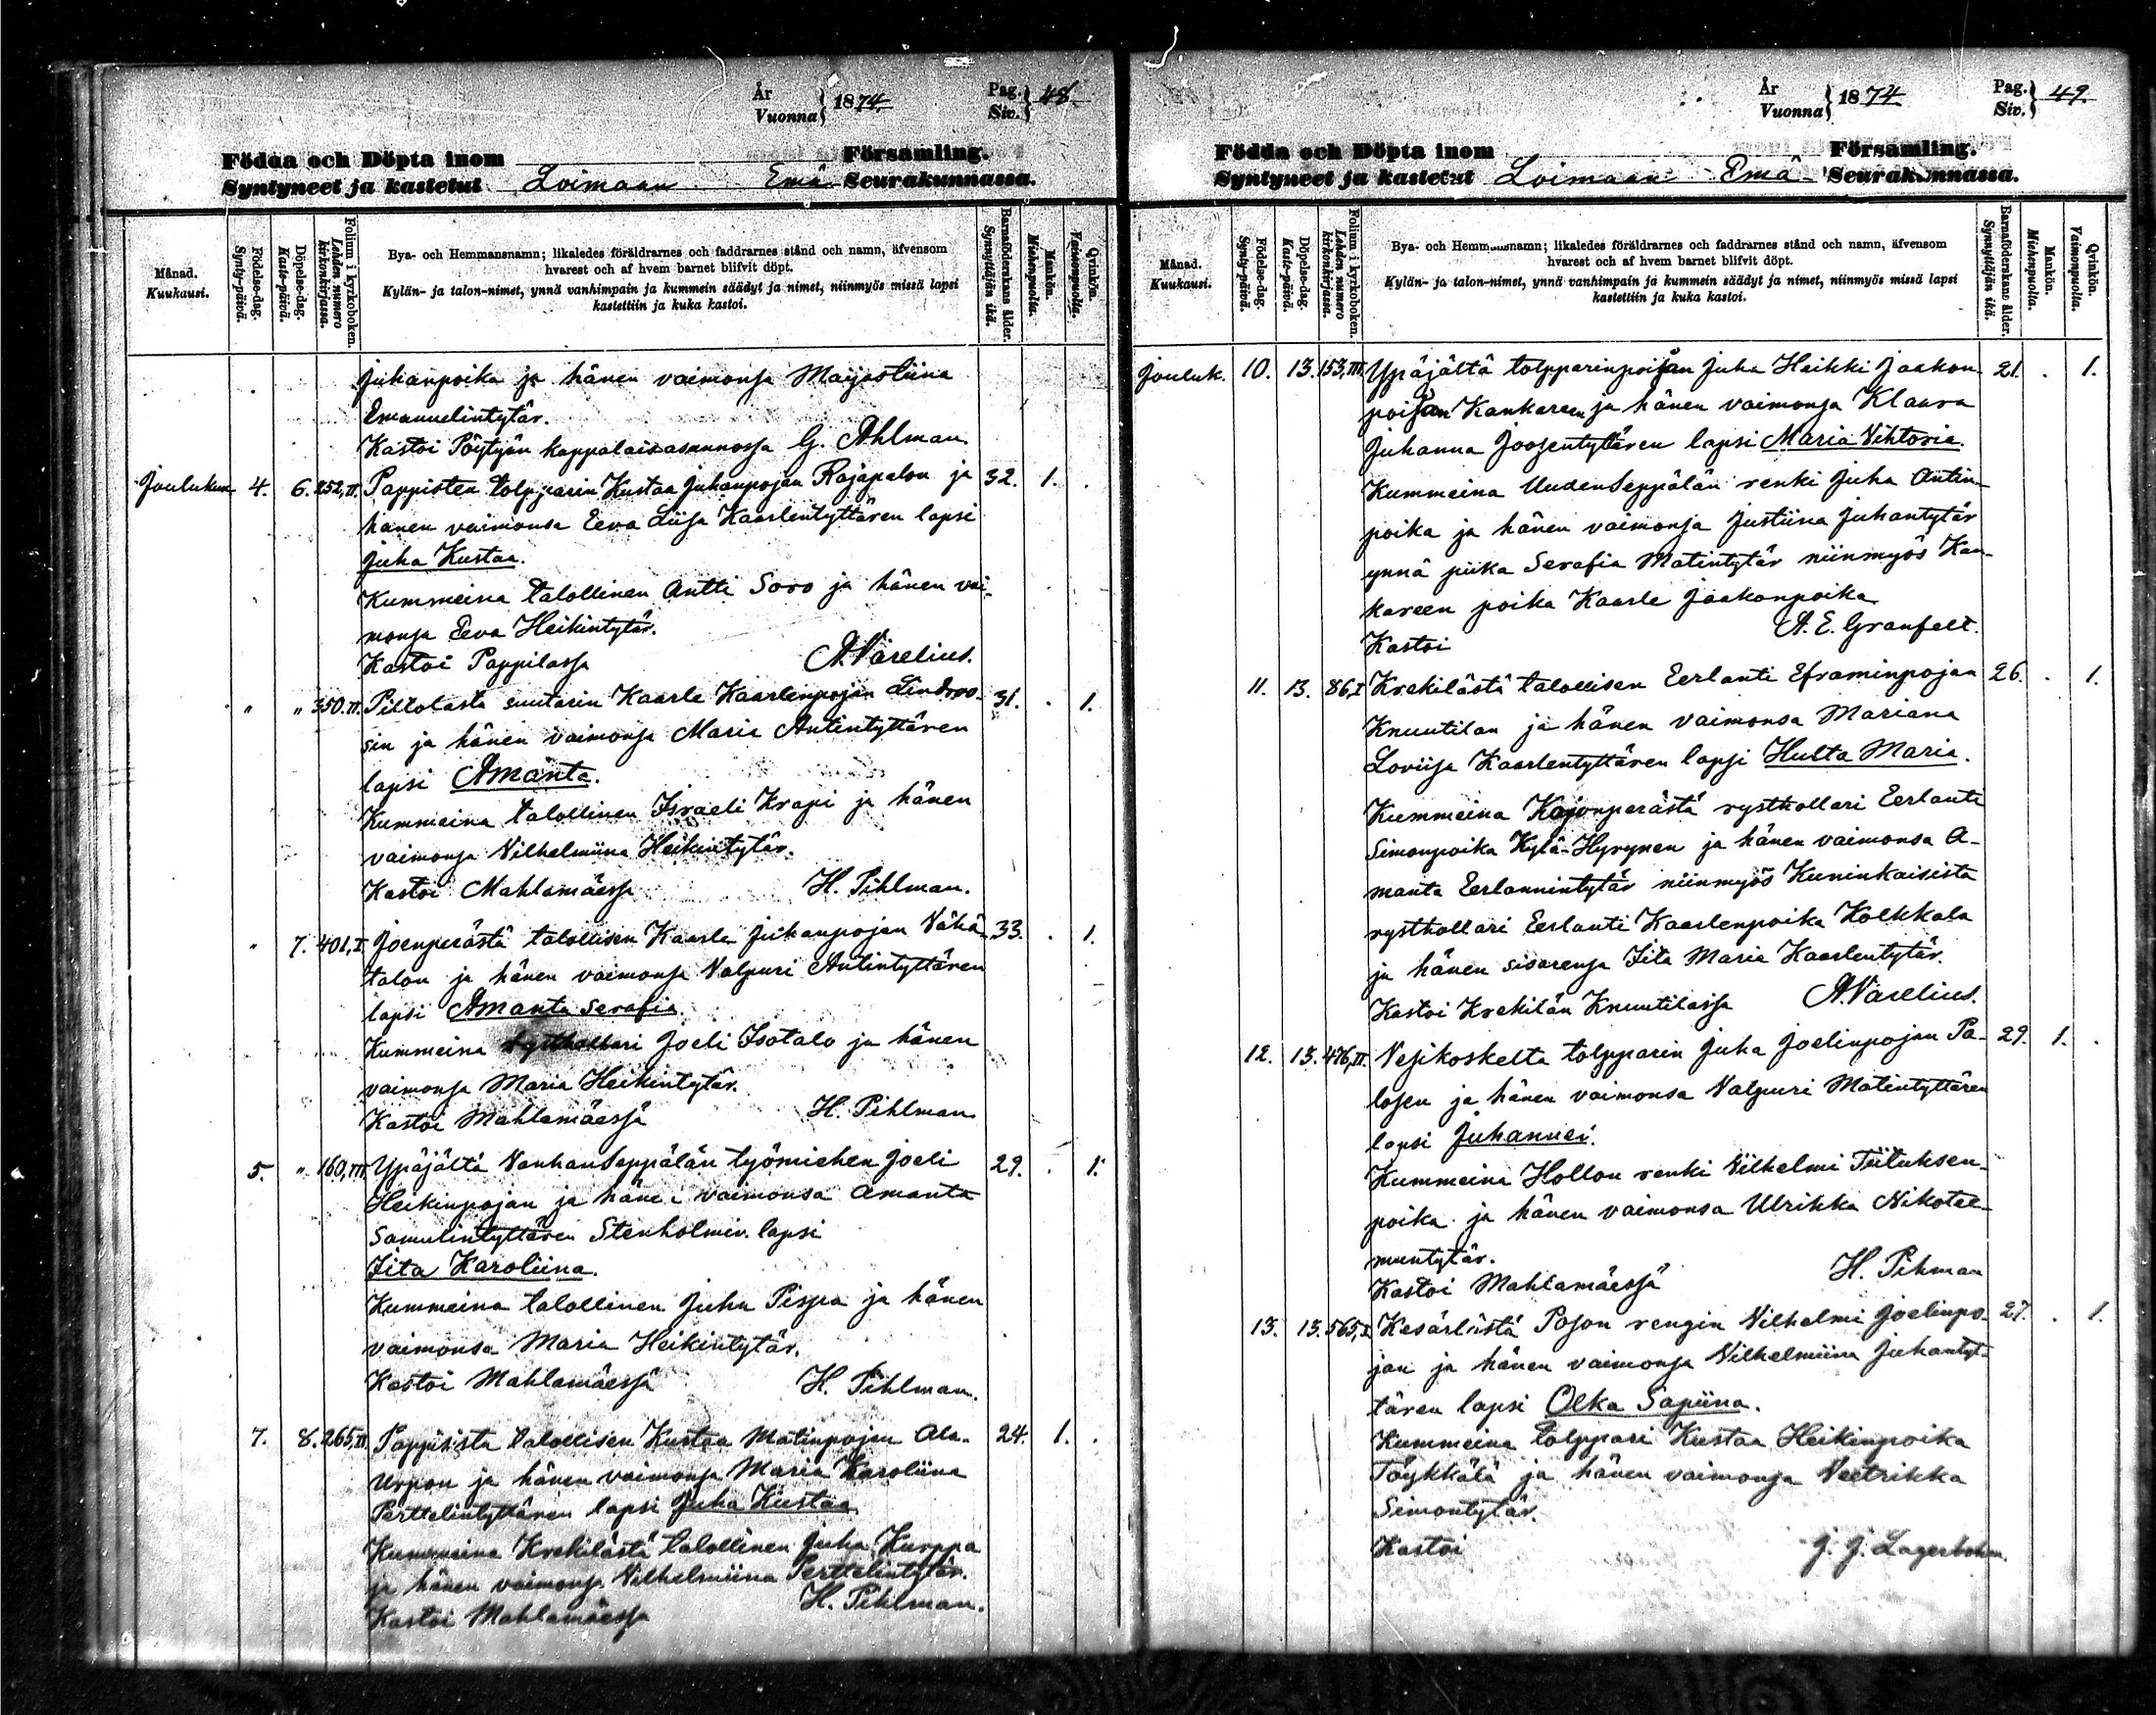 År
Vuonna } 1874.
Pag.
Siv. } 48.
Födda och Döpta inom Församling.
Syntyneet ja kastetut Loimaan Emä Seurakunnassa.
Månad.
Kuukausi.
Födelse-dag.
Synty-päivä.
Döpelse-dag.
Kaste-päivä.
Folium i kyrkoboken.
Lehden numero
kirkonkirjassa.
Bya- och Hemmansnamn; likaledes föräldrarnes och faddrarnes stånd och namn, äfvensom
hvarest och af hvem barnet blifvit döpt.
Kylän- ja talon-nimet, ynnä vanhimpain ja kummein säädyt ja nimet, niinmyös missä lapsi
kastettiin ja kuka kastoi.
Barnaföderskans ålder.
Synnyttäjän ikä.
Mankön.
Miehenpuolta.
Qvinkön.
Vaimonpuolta.
Juhanpoika ja hänen vaimonsa Maijastiina
Emanuelintytär.
Kastoi Pöytyän kappalaisasunnossa G. Ahlman.
Joulukuu 4. 6. 252,II. Pappisten tolpparin Kustaa Juhanpojan Rajapalon ja 32. 1.
hänen vaimonsa Eeva Liisa Kaarlentyttären lapsi
Juha Kustaa.
Kummeina talollinen Antti Soro ja hänen vai-
monsa Eeva Heikintytär.
Kastoi Pappilassa A. Varelius.
" " 350.II. Piltolasta suutarin Kaarle Kaarlenpojan Lindroo- 31. 1.
sin ja hänen vaimonsa Maria Antintyttären
lapsi Amanta.
Kummeina talollinen Israeli Krapi ja hänen
vaimonsa Vilhelmiina Heikintytär.
Kastoi Mahlamäessä H. Pihlman.
" 7. 401,I. Joenperästä talollisen Kaarle Juhanpojan Vähä- 33. 1.
talon ja hänen vaimonsa Valpuri Antintyttären
lapsi Amanta Serafia.
Kummeina rysthollari Joeli Isotalo ja hänen
vaimonsa Maria Heikintytär.
Kastoi Mahlamäessä H. Pihlman
5. " 160,III. Ypäjältä VanhanSeppälän työmiehen Joeli 29. 1.
Heikinpojan ja hänen vaimonsa Amanta
Samulintyttären Stenholmin lapsi
Iita Karoliina.
Kummeina talollinen Juha Pispa ja hänen
vaimonsa Maria Heikintytär.
Kastoi Mahlamäessä H. Pihlman.
7. 8. 265,II. Pappisista talollisen Kustaa Matinpojan Ala- 24. 1.
Urpon ja hänen vaimonsa Maria Karoliina
Perttelintyttären lapsi Juha Kustaa
Kummeina Krekilästä talollinen Juha Kurppa
ja hänen vaimonsa Vilhelmiina Perttelintytär.
Kastoi Mahlamäessä H. Pihlman.
År
Vuonna } 1874
Pag.
Siv. } 49.
Födda och Döpta inom Församling.
Syntyneet ja kastetut Loimaan Emä Seurakunnassa.
Månad.
Kuukausi.
Födelse-dag.
Synty-päivä.
Döpelse-dag.
Kaste-päivä.
Folium i kyrkoboken.
Lehden numero
kirkonkirjassa.
Bya- och Hemmansnamn; likaledes föräldrarnes och faddrarnes stånd och namn, äfvensom
hvarest och af hvem barnet blifvit döpt.
Kylän- ja talon-nimet, ynnä vanhimpain ja kummein säädyt ja nimet, niinmyös missä lapsi
kastettiin ja kuka kastoi.
Barnaföderskans ålder.
Synnyttäjän ikä.
Mankön.
Miehenpuolta.
Qvinkön.
Vaimonpuolta.
Jouluk. 10. 13. 153,III. Ypäjältä tolpparinpoijan Juha Heikki Jaakon- 21. 1.
poijan Kankareen ja hänen vaimonsa Klaara
Juhanna Joosentyttären lapsi Maria Vihtoria.
Kummeina UudenSeppälän renki Juha Antin-
poika ja hänen vaimonsa Justiina Juhantytär
ynnä piika Serafia Matintytär niinmyös Kan-
kareen poika Kaarle Jaakonpoika
Kastoi A. E. Granfelt.
11. 13. 86,I Krekilästä talollisen Eerlanti Eframinpojan 26. 1.
Knuutilan ja hänen vaimonsa Mariana
Loviisa Kaarlentyttären lapsi Hulta Maria.
Kummeina Kojonperästä rysthollari Eerlanti
Simonpoika Kylä-Hyrynen ja hänen vaimonsa A-
manta Eerlannintytär niinmyös Kuninkaisista
rysthollari Eerlanti Kaarlenpoika Kolkkala
ja hänen sisarensa Iita Maria Kaarlentytär.
Kastoi Krekilän Knuutilassa A. Varelius.
12. 13. 476,II. Vesikoskelta tolpparin Juha Joelinpojan Pa- 29. 1.
losen ja hänen vaimonsa Valpuri Matintyttären
lapsi Juhannes.
Kummeina Hollon renki Vilhelmi Tiituksen-
poika ja hänen vaimonsa Ulrikka Nikotee-
muntytär.
Kastoi Mahlamäessä H. Pihman
13. 13. 565,I. Kesärlistä Poson rengin Vilhelmi Joelinpo- 27. 1.
jan ja hänen vaimonsa Vilhelmiina Juhantyt-
tären lapsi Olka Sapiina.
Kummeina tolppari Kustaa Heikinpoika
Töykkälä ja hänen vaimonsa Veetrikka
Simontytär.
Kastoi J. J. Lagerbohm.